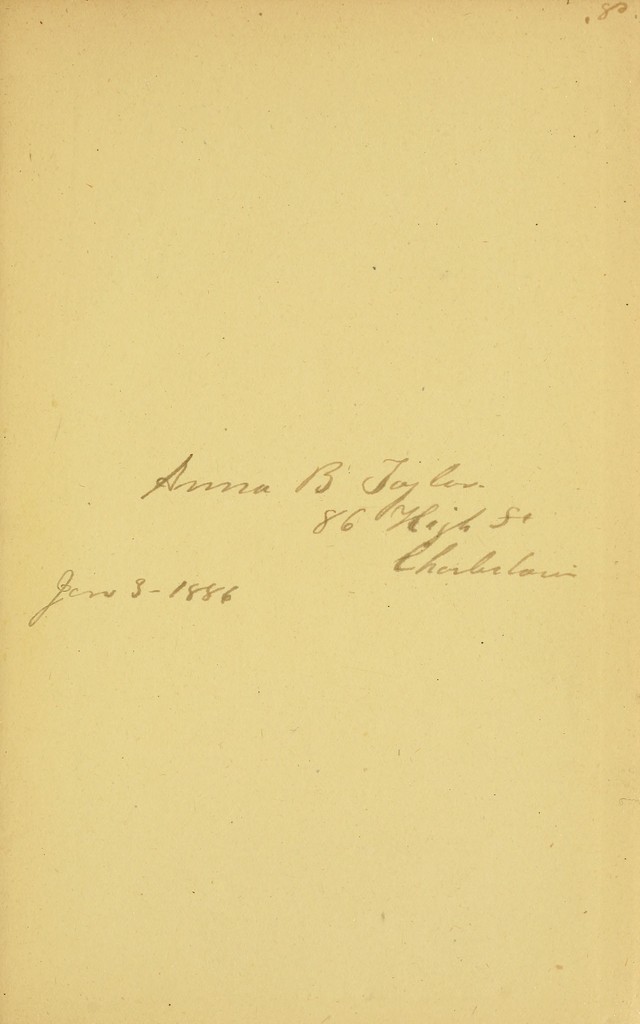 Anna B Taylor.
86 High St
Charlestown
Jan 3-1886